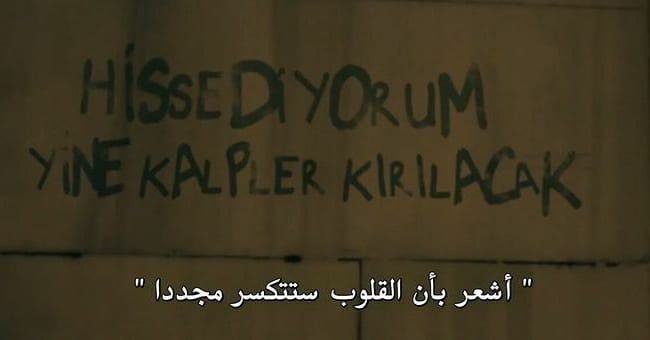 HİSSEDİYORUM
YİNE KALPLER KIRILACAK
" أشعر بأن القلوب ستتكسر مجددا "